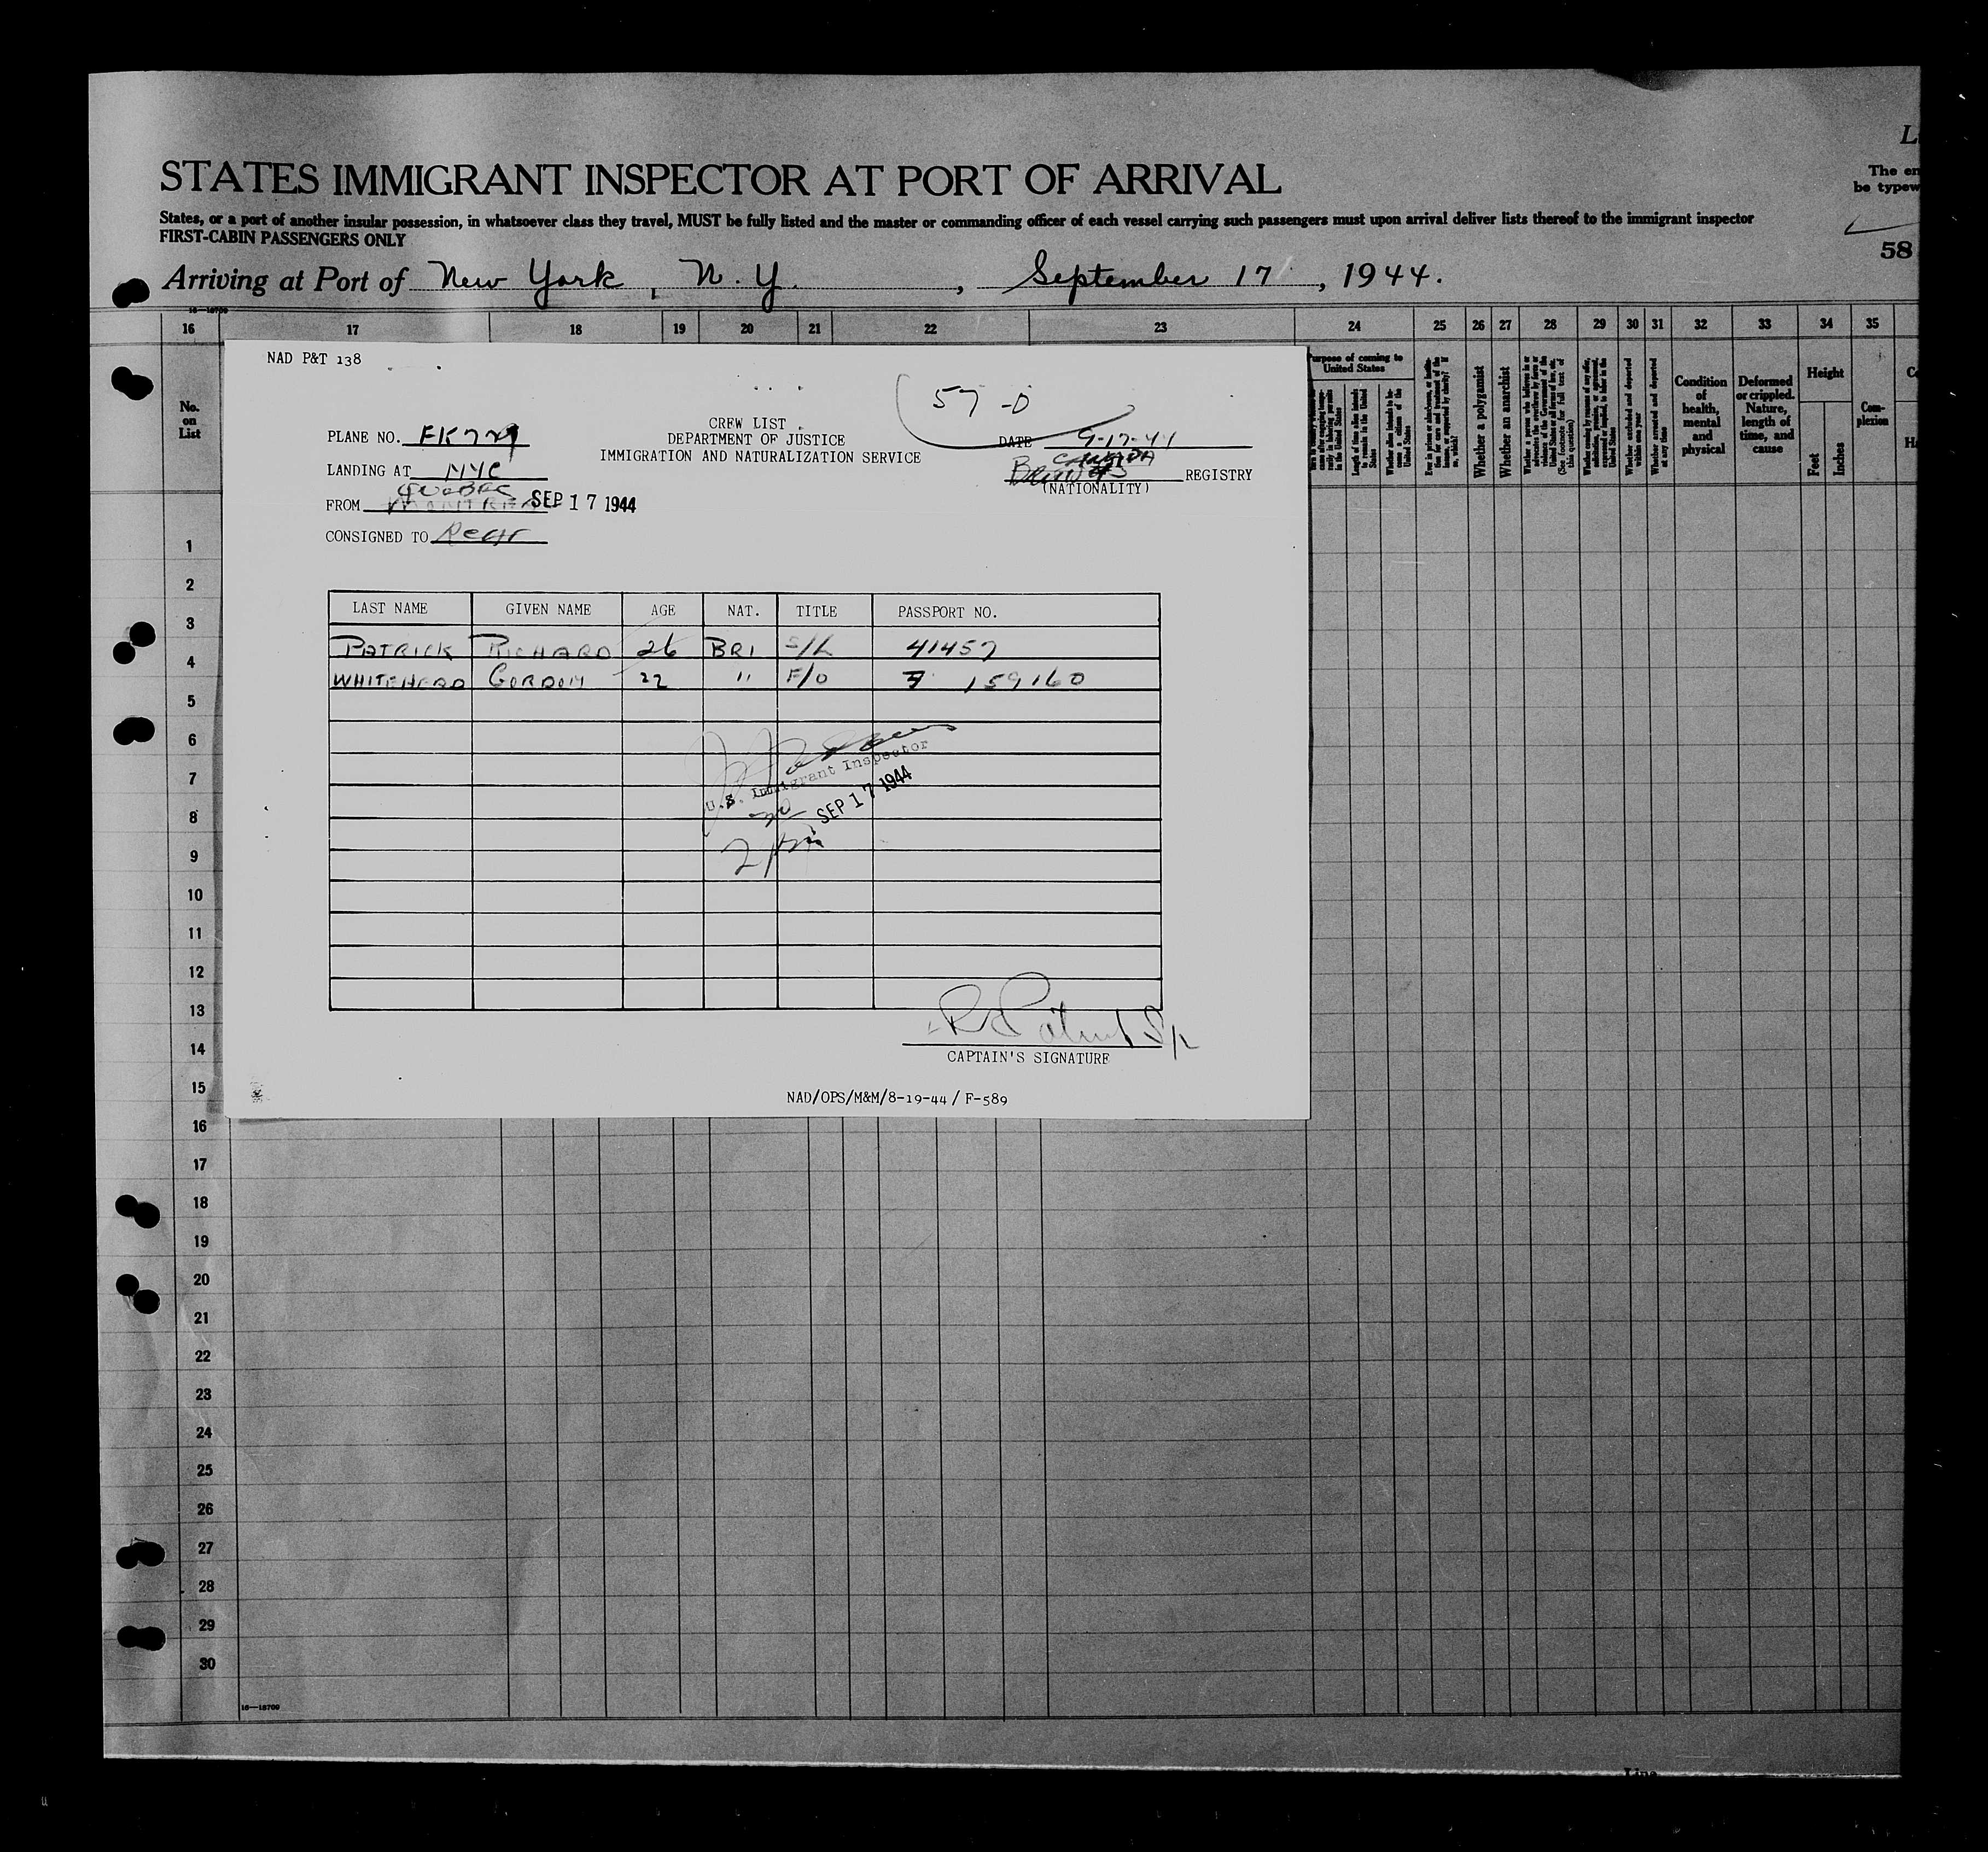 L
STATES IMMIGRANT INSPECTOR AT PORT OF ARRIVAL
The en
be typew
States, or a port of another insular possession, in whatsoever class they travel, MUST be fully listed and the master or commanding officer of each vessel carrying such passengers must upon arrival deliver lists thereof to the immigrant inspector
FIRST-CABIN PASSENGERS ONLY
58
Arriving at Port of New York, N. Y. , September 17, 1944.
16—18700
16 17 18 19 20 21 22 23 24 25 26 27 28 29 30 31 32 33 34 35
No. on List
Purpose of coming to United States
Whether a polygamist
Whether an anarchist
Condition of health, mental and physical
Deformed or crippled. Nature, length of time, and cause
Height
Feet
Inches
Complexion
NAD P&T 138
57 -D
CREW LIST
DEPARTMENT OF JUSTICE
IMMIGRATION AND NATURALIZATION SERVICE
PLANE NO.
DATE 9-17-44
LANDING AT NYC
CANADA
REGISTRY
(NATIONALITY)
QUEBEC
FROM MONTREAL SEP 17 1944
CONSIGNED TO
LAST NAME GIVEN NAME AGE NAT. TITLE PASSPORT NO.
PATRICK RICHARD 26 BRI S/L 41457
WHITEHEAD GORDON 22 " F/O 159160
U.S. Immigrant Inspector
SEP 17 1944
CAPTAIN'S SIGNATURE
NAD/OPS/M&M/8-19-44 / F-589
1
2
3
4
5
6
7
8
9
10
11
12
13
14
15
16
17
18
19
20
21
22
23
24
25
26
27
28
29
30
16—18700
Line